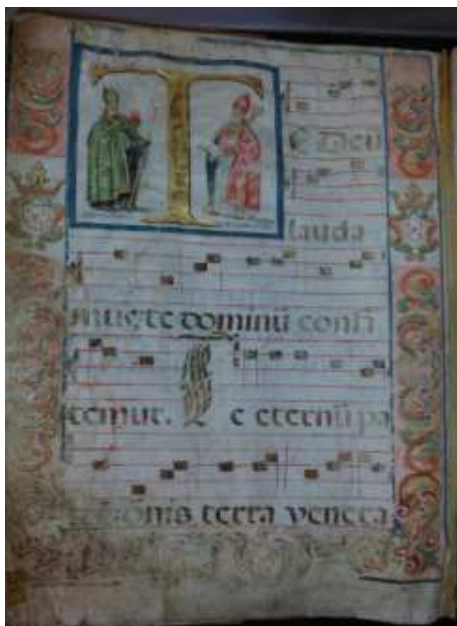 T
e Deū
lauda
mus, te dominū confi
temur. T e eternū pa
omnis terra venera